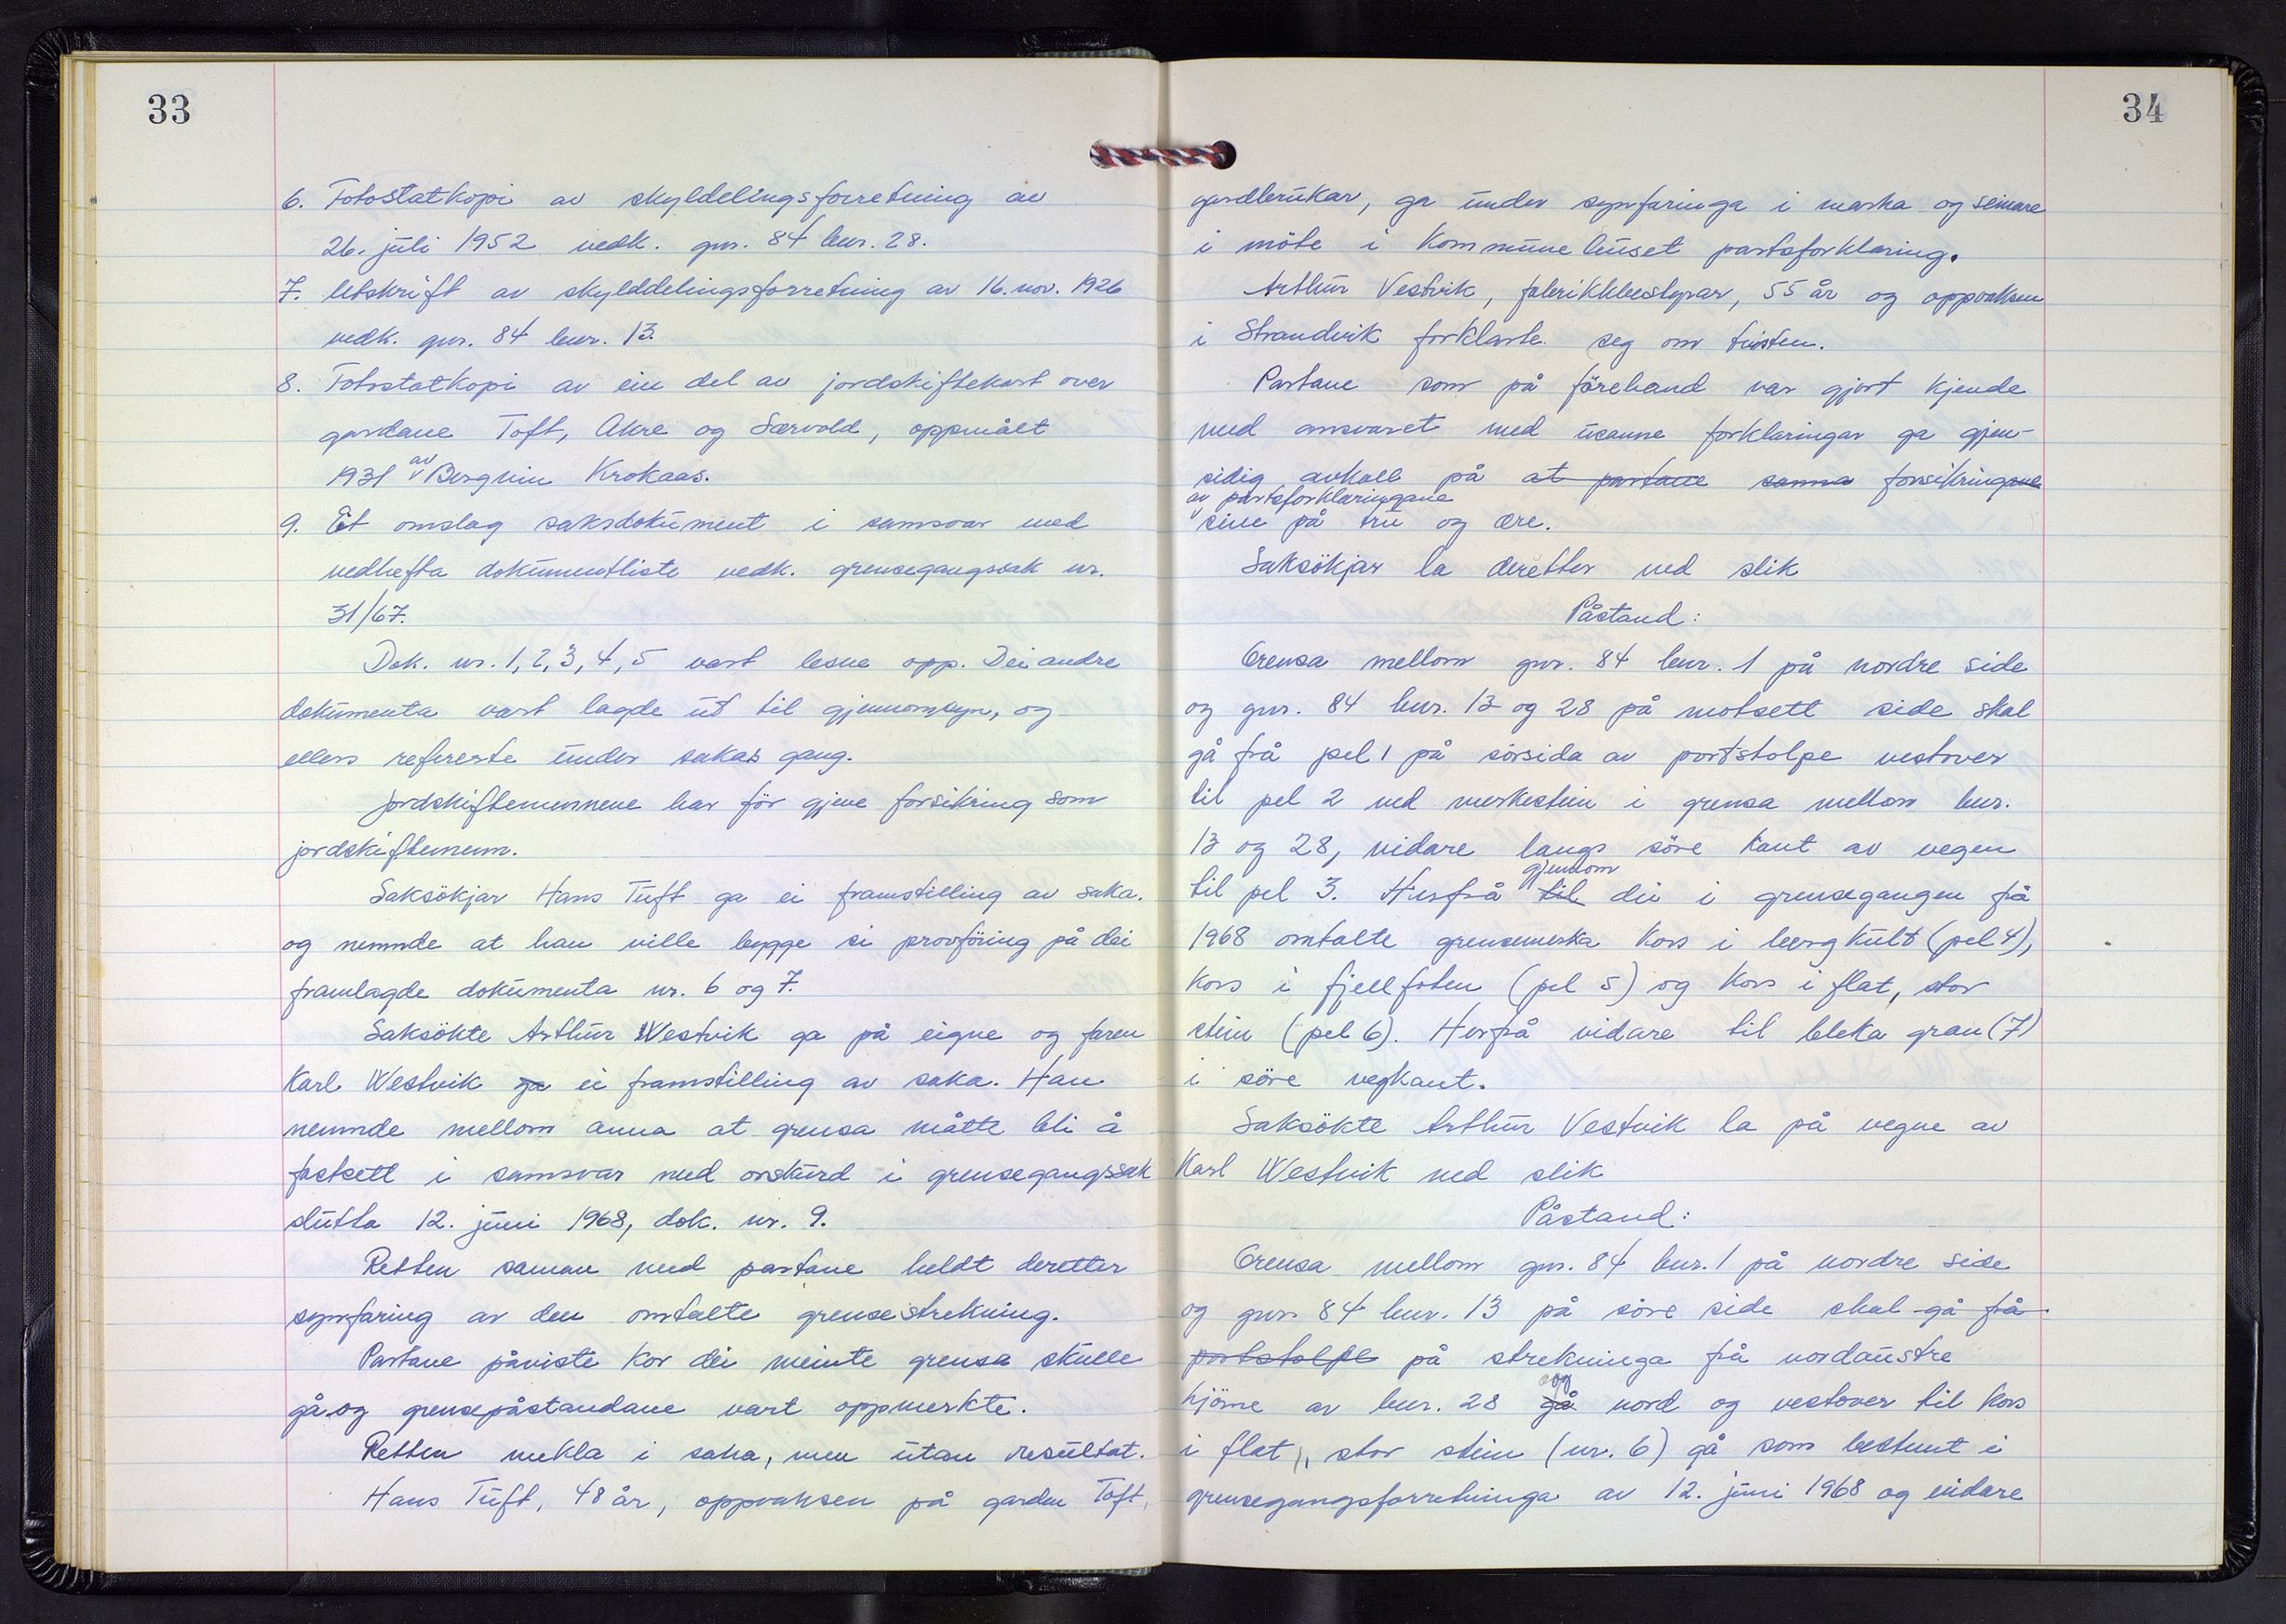 33
6. Fotostatkopi av skyldelingsforretning av
26. juli 1952 vedk. gnr. 84 bnr. 28.
7. Utskrift av skylddelingsforretning av 16. nov. 1926
vedk. gnr. 84 bnr. 13.
8. Fotostatkopi av ein del av jordskiftekart over
gardane Toft, Akre og Sævold, oppmålt
1931 av Bergnin Krokaas.
9. Et omslag saksdokument i samsvar med
vedhefta dokumentliste vedk. grensegangssak nr.
31/67.
Dok. nr. 1, 2, 3, 4, 5 vart lesne opp. Dei andre
dokumenta vart lagde ut til gjennomsyn, og
ellers refererte under sakas gang.
Jordskiftemennene har för gjeve forsikring som
jordskiftemenn.
Saksökjar Hans Tuft ga ei framstilling av saka.
og nemnde at han ville bygge si provföring på dei
framlagde dokumenta nr. 6 og 7.
Saksökte Arthur Westvik ga på eigne og faren
Karl Westvik ga ei framstilling av saka. Han
nemnde mellom anna at grensa måtte bli å
fastsett i samsvar med orskurd i grensegangssak
slutta 12. juni 1968, dok. nr. 9.
Retten saman med partane heldt deretter
synfaring av den omtalte grensestrekning.
Partane påviste kor dei meinte grensa skulle
gå og grensepåstandane vart oppmerkte.
Retten mekla i saka, men utan resultat.
Hans Tuft, 48 år, oppvaksen på garden Toft,
34
gardbrukar, ga under synfaringa i marka og seinare
i möte i Kommunehuset partsforklaring.
Arthur Vestvik, fabrikkbestyrar, 55 år og oppvaksen
i Strandvik forklarte seg om tvisten.
Partane som på förehand var gjort kjende
med ansvaret med usanne forklaringar ga gjen-
sidig avkall på at partane sanna forsikringane
av partsforklaringane
sine på tru og ære.
Saksökjar la deretter ned slik
Påstand:
Grensa mellom gnr. 84 bnr. 1 på nordre side
og gnr. 84 bnr. 13 og 28 på motsett side skal
gå frå pel 1 på sörsida av portstolpe vestover
til pel 2 ved merkestein i grensa mellom bnr.
13 og 28, vidare langs söre kant av vegen
gjennom
til pel 3. Herfrå til dei i grensegangen frå
1968 omtalte grensemerka kors i bergkult (pel 4),
kors i fjellfoten (pel 5) og kors i flat, stor
stein (pel 6). Herfrå vidare til bleka gran (7)
i söre vegkant.
Saksökte Arthur Vestvik la på vegne av
Karl Westvik ned slik
Påstand:
Grensa mellom gnr. 84 bnr. 1 på nordre side
og gnr 84 bnr. 13 på söre side skal gå frå
portstolpe på strekninga frå nordaustre
og
hjörne av bnr. 28 gå nord og vestover til kors
i flat, stor stein (nr. 6) gå som bestemt i
grensegangsforretninga av 12. juni 1968 og vidare